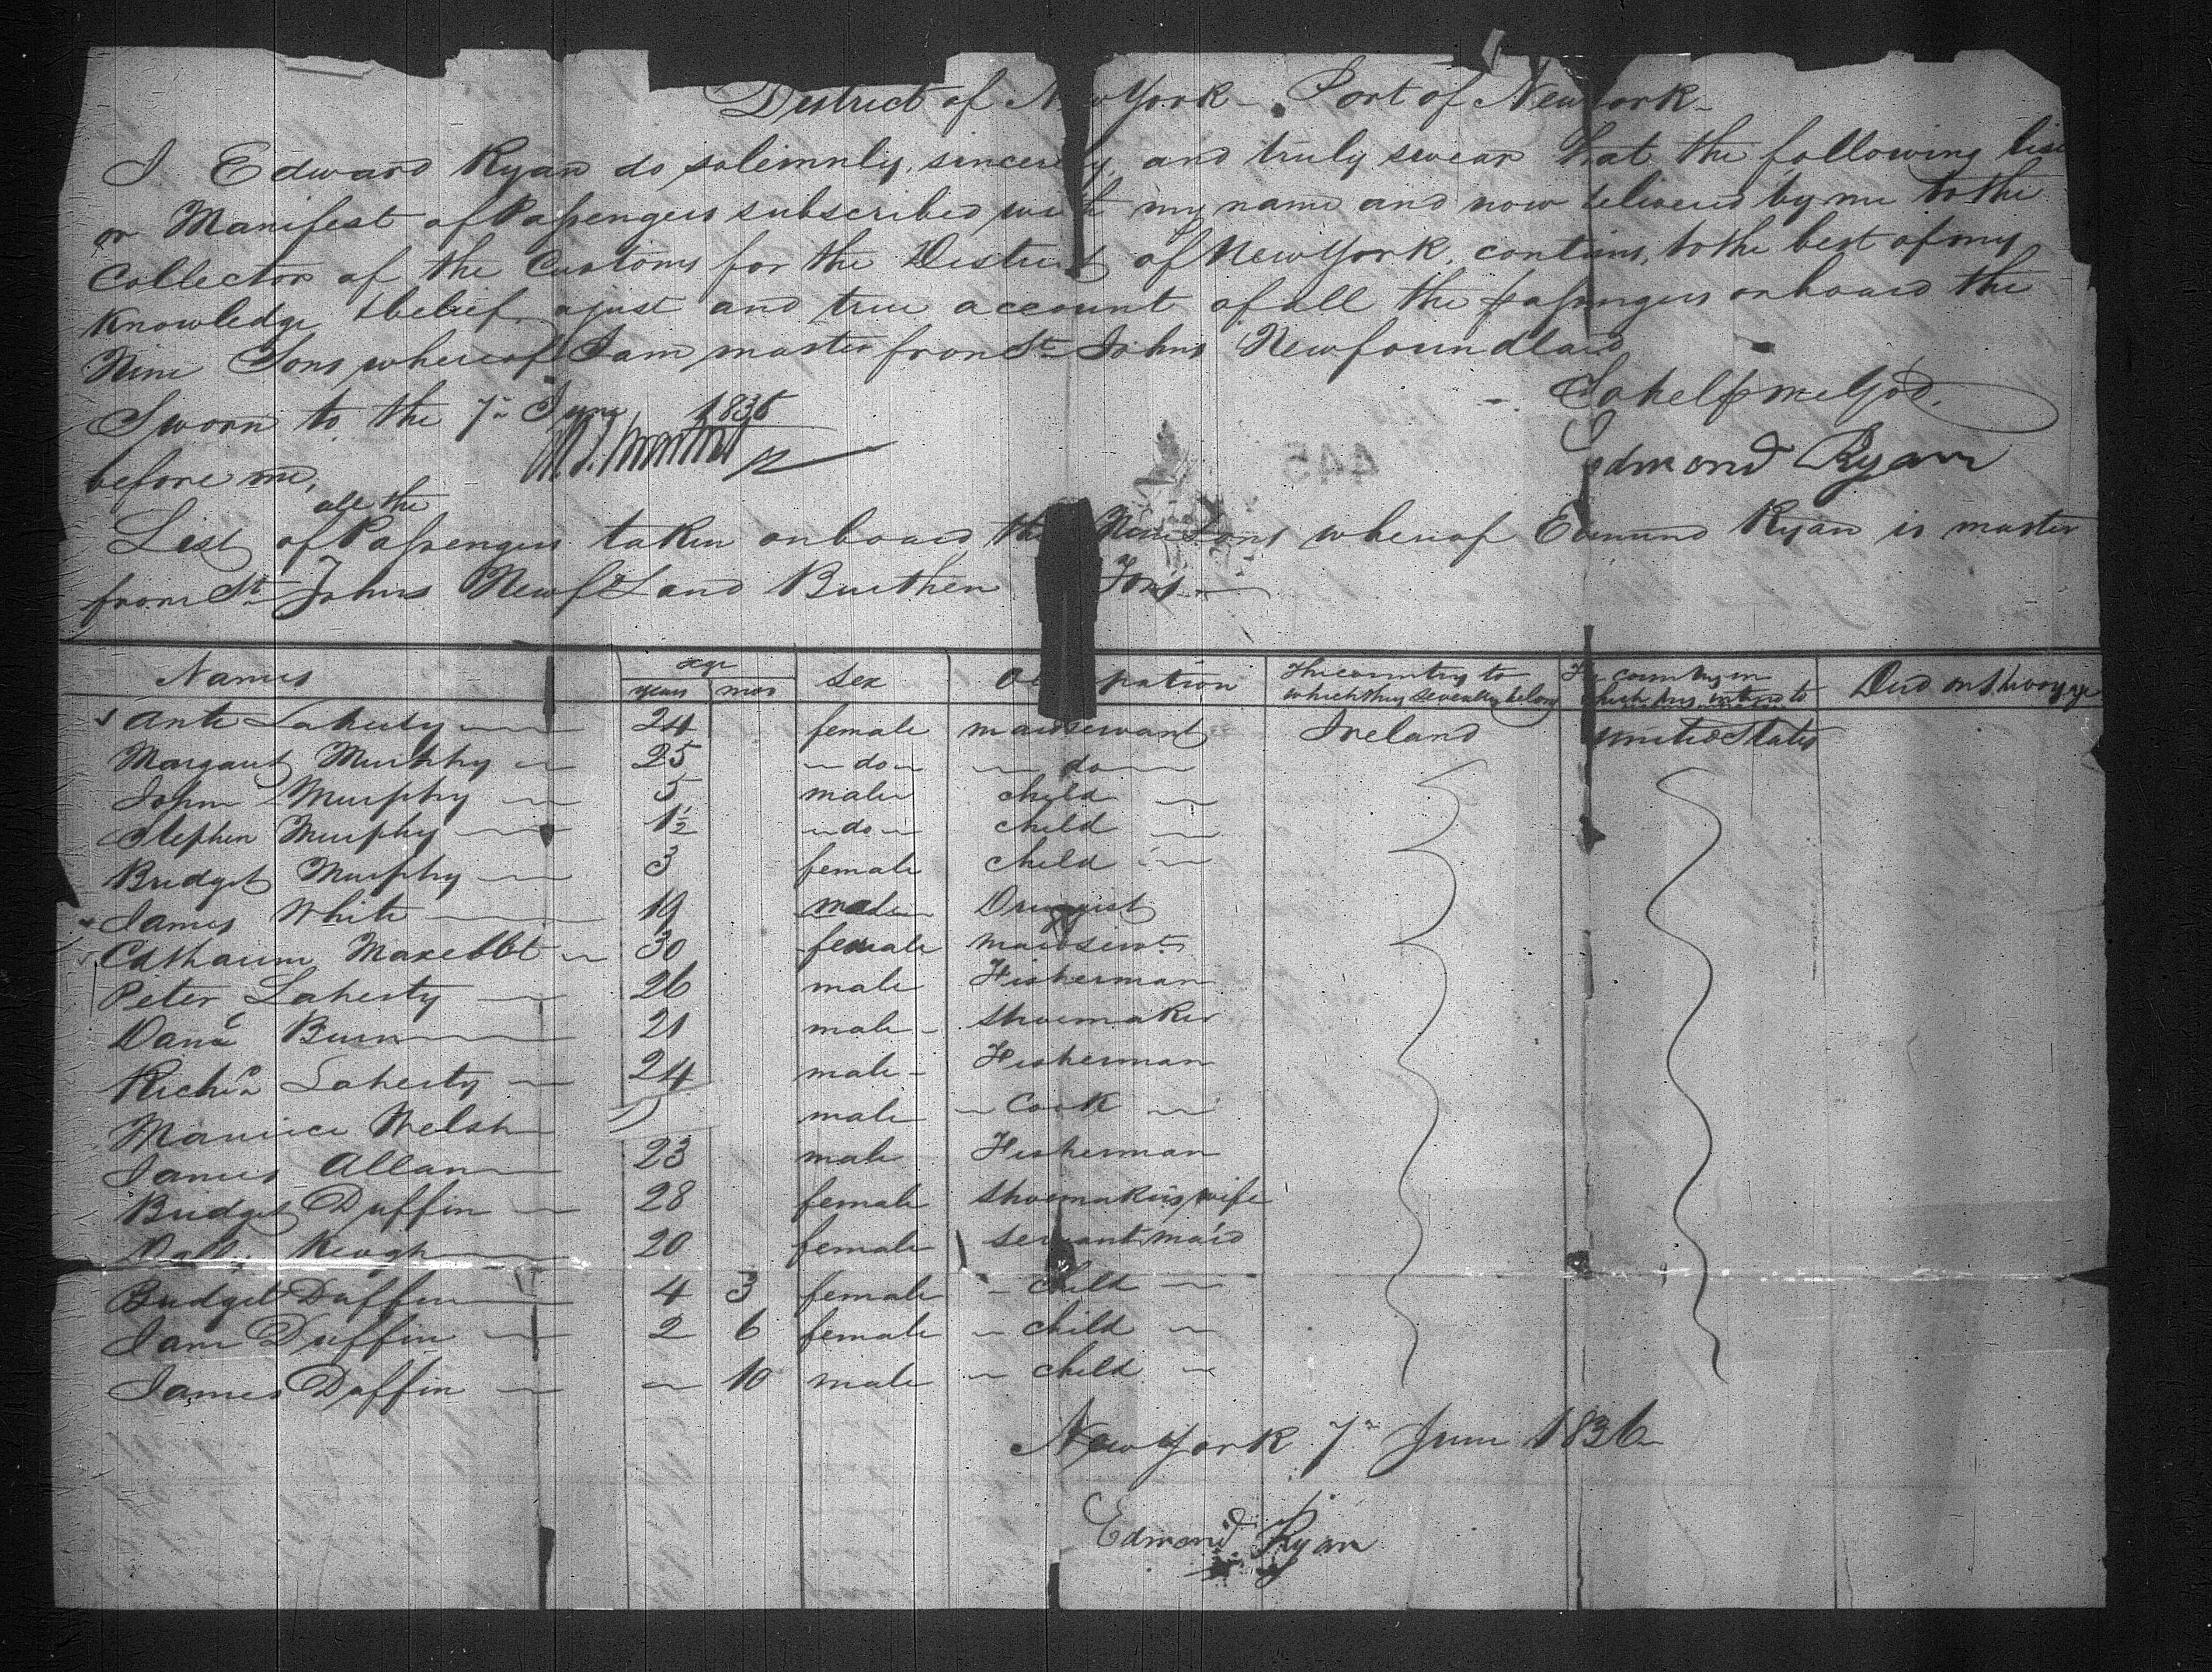 District of New York - Port of New York -
I Edward Ryan do solemnly, sincerely, and truly swear that the following list
or Manifest of Passengers subscribed with my name and now delivered by me to the
Collector of the Customs for the District of New York, contains, to the best of my
knowledge & belief, a just and true account of all the passengers on board the
Nine Sons whereof I am master from St Johns Newfoundland
So help me God.
Sworn to the 7th June 1836
before me,
Edmond Ryan
445
all the
List of Passengers taken on board the Nine Sons whereof Edmund Ryan is master
from St Johns Newfd Land Burthen Tons
Names age years mos sex Occupation The country to which they severally belong The country in which they intend to Died on the voyage
Laherty 24 female maidservant Ireland United States
Margaret Murphy 25 do do
John Murphy 5 male child
Stephen Murphy 1½ do child
Bridget Murphy 3 female child
James White 19 male Druggist
Catharine 30 female maidservt
Peter Laherty 26 male Fisherman
Burn 21 male shoemaker
Richd Laherty 24 male Fisherman
Maurice Welsh male Cook
James Allan 23 male Fisherman
Bridget Duffin 28 female shoemakers wife
Keogh 20 female servant maid
Bridget Duffin 4 3 female child
Jane Duffin 2 6 female child
James Duffin 10 male child
New York 7th June 1836
Edmond Ryan